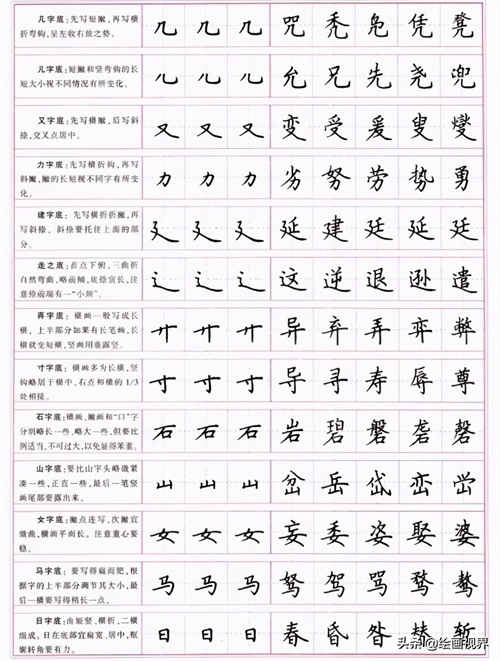 几字底：先写短撇，再写横
折弯钩，呈左收右放之势。
几 几 几 咒 秃 凫 凭 凳
儿字底：短撇和竖弯钩的长
短大小视不同情况有所变化。
儿 儿 儿 允 兄 先 尧 兜
又字底：先写横撇，后写斜
捺，交叉点居中。
又 又 又 变 受 爰 叟 燮
力字底：先写横折钩，再写
斜撇，撇的长短视不同字有所变
化。
力 力 力 劣 努 劳 势 勇
建字底：先写横折折撇，再
写斜捺，斜捺要托住上面的部
分。
廴 廴 廴 延 建 廷 延 廷
走之底：首点下俯，三曲折
自然弯曲，略前倾，底捺宜长，注
意捺前端有一“小颈”。
辶 辶 辶 这 逆 退 逊 遣
弄字底：横画一般写成长
横，上半部分如果有长笔画，长
横就变短横，竖画用垂露竖。
廾 廾 廾 异 弃 弄 弈 弊
寸字底：横画多为长横，竖
钩略居于横中，右点和横的1/3
处相接。
寸 寸 寸 导 寻 寿 辱 尊
石字底：横画、撇画和“口”字
分别略长一些，略大一些，但要比
例适当，不可过大，以免显得笨重。
石 石 石 岩 碧 磐 砻 磬
山字底：要比山字头略微紧
凑一些，正直一些，最后一笔竖
画尾部要露出来。
山 山 山 岔 岳 岱 峦
女字底：撇点连写，次撇宜
微曲，横画平而长。注意重心要
稳。
女 女 女 妄 委 姿 娶 婆
马字底：要写得扁而肥，根
据字的上半部分调节其大小，最
后一横要写得稍长一点。
马 马 马 驽 驾 骂 骛 骜
日字底：由短竖、横折、二横
组成，日在底部宜扁宽、居中，框
廓转角要有力。
日 日 日 春 昏 昝 替 暂
头条@绘画视界